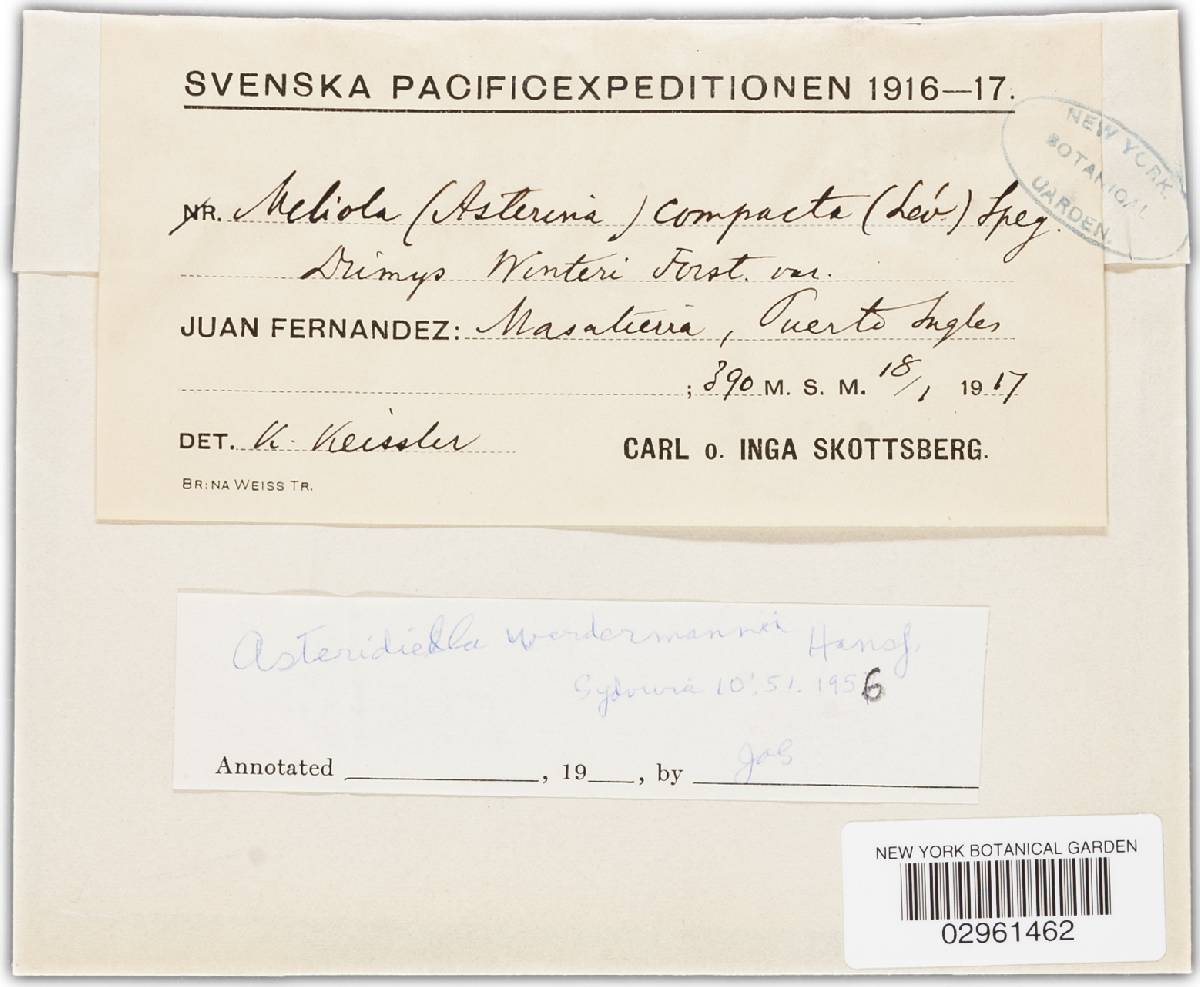 SVENSKA PACIFICEXPEDITIONEN 1916—17.
NEW YORK
BOTANICAL
GARDEN.
NR. Meliola (Asterina) compacta (Lév.) Speg.
Drimys Winteri Forst. var.
JUAN FERNANDEZ: Masatierra, Puerto Ingles
; 390 M. S. M. 18/1 1917
DET. K. Keissler
CARL O. INGA SKOTTSBERG.
BR:NA WEISS TR.
Asteridiella werdermannii Hansf.
Sydowia 10:51. 1956
Annotated , 19 , by
NEW YORK BOTANICAL GARDEN
02961462